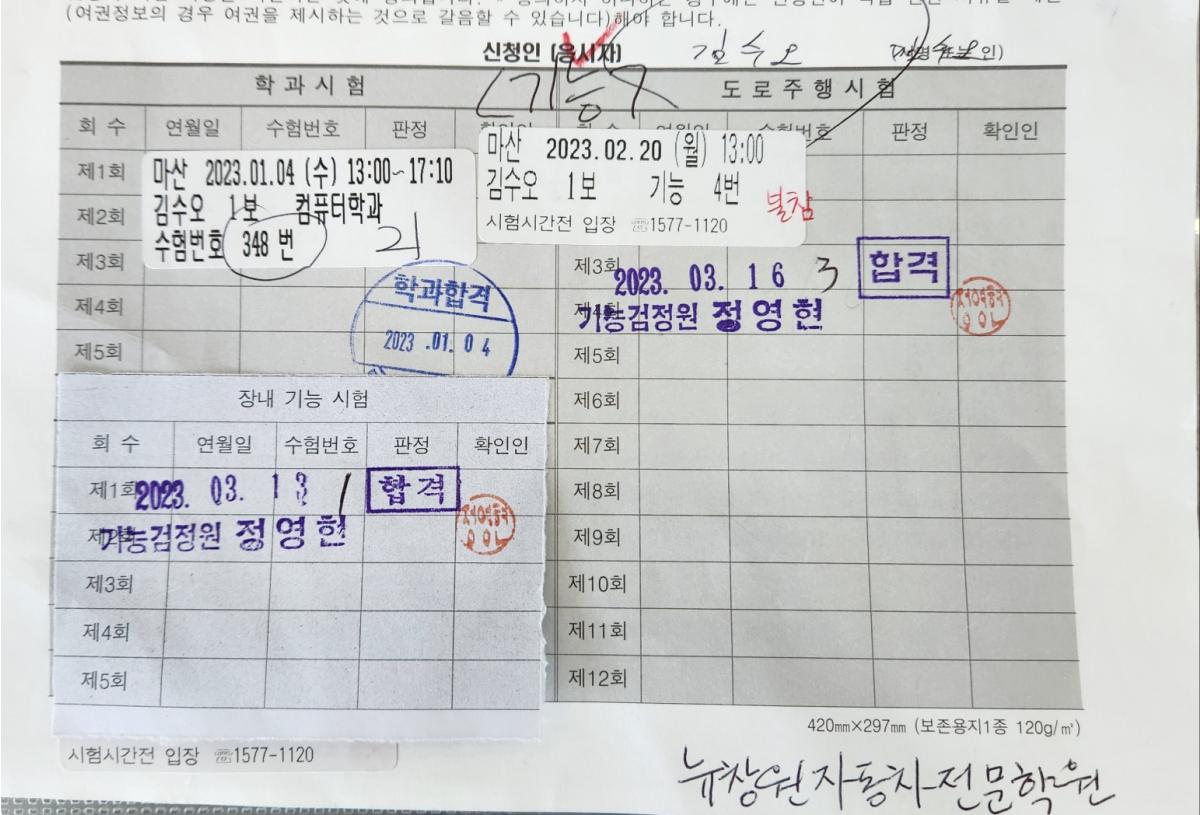 (여권정보의 경우 여권을 제시하는 것으로 갈음할 수 있습니다)해야 합니다.
신청인 (응시자) 김수오
기능
학과시험
도로주행시험
회 수 연월일 수험번호 판정
판정 확인인
마산 2023.01.04 (수) 13:00~17:10
김수오 1보 컴퓨터학과
수험번호 348 번
마산 2023.02.20 (월) 13:00
김수오 1보 기능 4번
불참
시험시간전 입장 ☏1577-1120
제1회
제2회
제3회
제4회
제5회
학과합격
2023.01.04
제3회 2023. 03. 16 3 합격
제4회 기능검정원 정영현
제5회
제6회
제7회
제8회
제9회
제10회
제11회
제12회
장내 기능 시험
회 수 연월일 수험번호 판정 확인인
제1회 2023. 03. 13 1 합격
제2회 기능검정원 정영현
제3회
제4회
제5회
420㎜×297㎜ (보존용지1종 120g/㎡)
시험시간전 입장 ☏1577-1120
뉴창원자동차전문학원